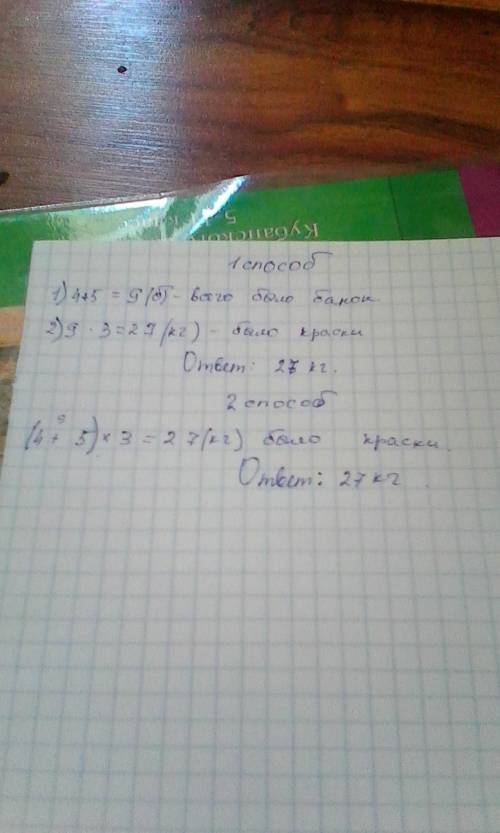 Кубанского
5 класс
1 способ
1) 4+5 = 9 (б) - всего было банок
2) 9 · 3 = 27 (кг) - было краски
Ответ: 27 кг.
2 способ
9
(4 + 5) × 3 = 27 (кг) было краски.
Ответ: 27 кг.